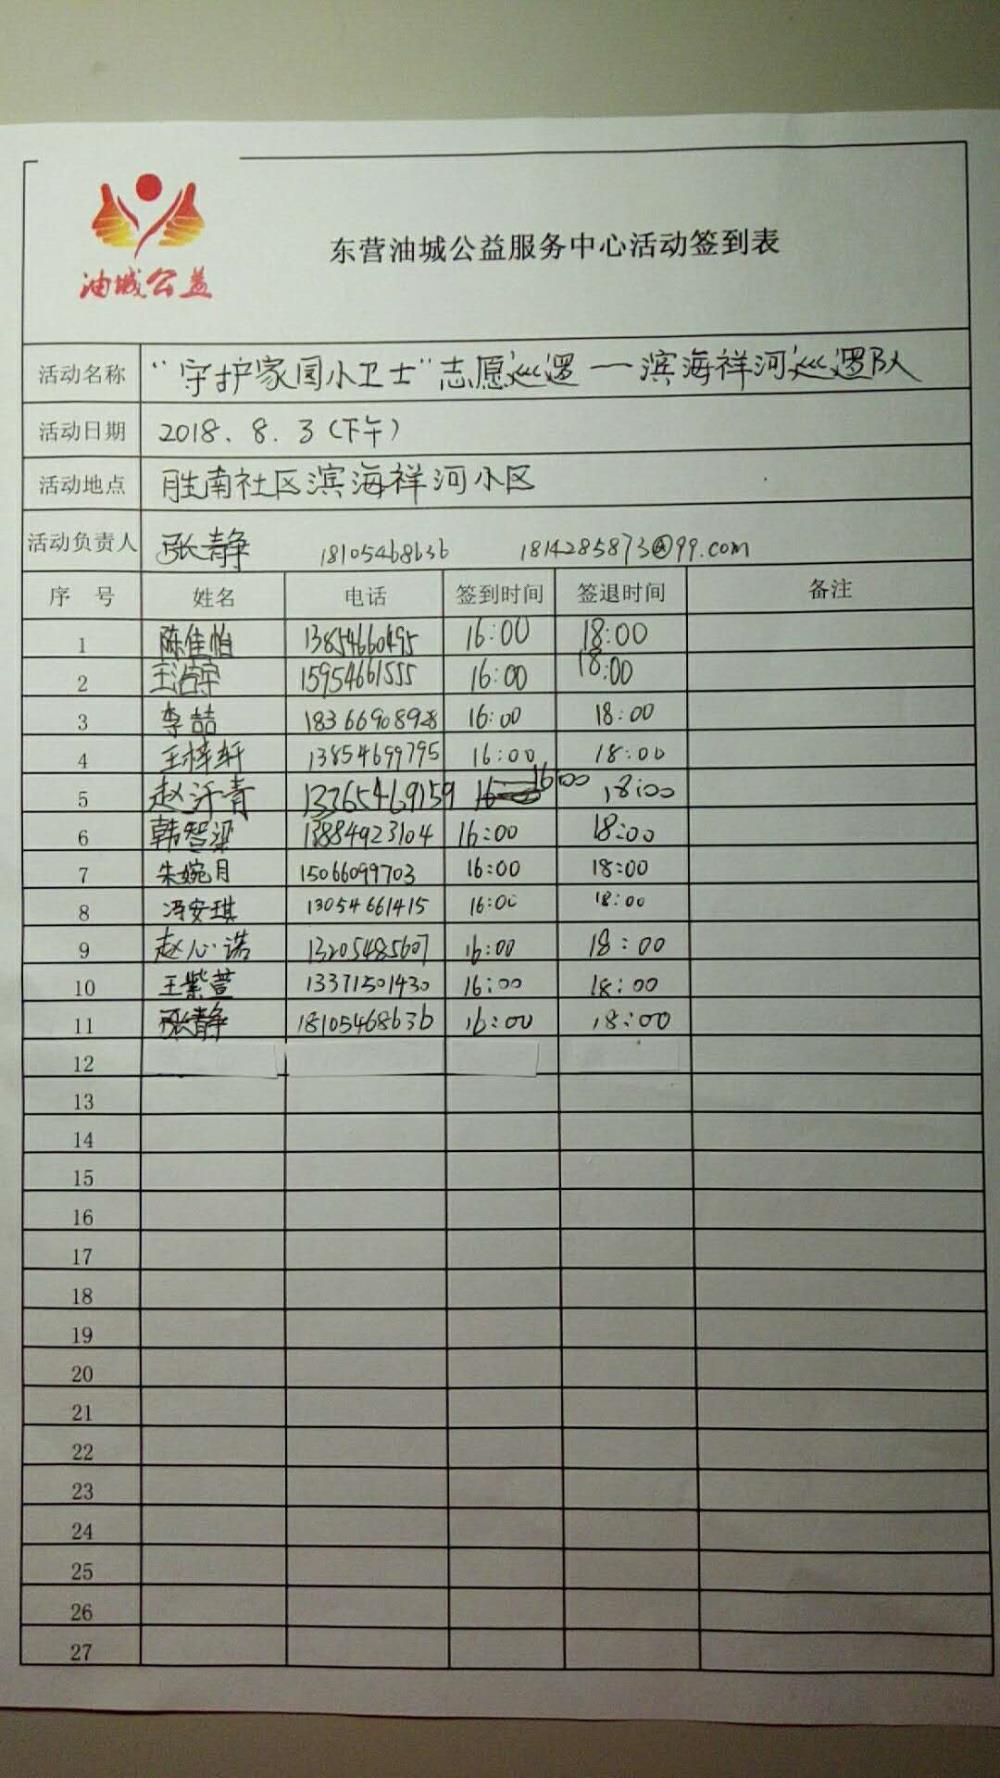 油城公益
东营油城公益服务中心活动签到表
活动名称 “守护家园小卫士”志愿巡逻一滨海祥河巡逻队
活动日期 2018.8.3(下午)
活动地点 胜南社区滨海祥河小区
活动负责人 张静 18105468636 1814285873@99.com
序 号 姓名 电话 签到时间 签退时间 备注
1 陈佳怡 13854660495 16:00 18:00
2 王浩宇 15954661555 16:00 18:00
3 李喆 18366908928 16:00 18:00
4 王梓轩 13854699795 16:00 18:00
5 赵汗青 13365469159 16:00 18:00
6 韩智梁 13884923104 16:00 18:00
7 朱婉月 15066099703 16:00 18:00
8 冯安琪 13054661415 16:00 18:00
9 赵心诺 13205485607 16:00 18:00
10 王紫萱 13371501430 16:00 18:00
11 张静 18105468636 16:00 18:00
12
13
14
15
16
17
18
19
20
21
22
23
24
25
26
27